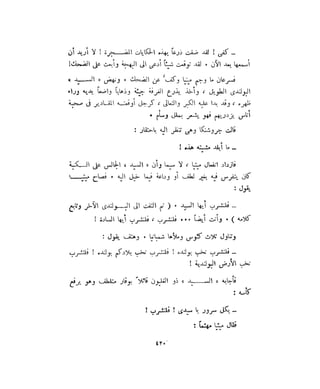 ـ كفى ! لقد ضقت ذرعا بهذه الحكايات المضـــجرة ! لا أريد أن
أسمعها بعد الآن ٠ لقد توقعت شيئاً أدعى الى البهجة وأبعث على الضحك!
فسرعان ما وجم ميتيا وكفَّ عن الضحك ٠ ونهض « الســـيد »
البولندى الطويل ، وأخذ يذرع الغرفة جيئة وذهاباً واضعاً يديه وراء
ظهره ، وقد بدا عليه الكبر والتعالى ، كرجل أوقعتـه المقـادير فى صحبة
أناس يزدريهم فهو يشعر بملل وسأم ٠
قالت جروشنكا وهى تنظر اليه باحتقار :
ـ ما أبغد مشيته هذه !
فازداد انفعال ميتيا ، لا سيما وأن « السيد » الجالس على الــكنبة
كان يتفرس فيه بغير لطف أو وداعة فيما خيل اليه ٠ فصاح ميتيـــا
يقول :
ـ فلنشرب أيها السيد ٠ ( ثم التفت الى البـــولندى الآخر وتابع
كلامه ) ٠ وأنت أيضاً ٠٠٠ فلنشرب ، فلنشرب أيها السادة !
وتناول ثلاث كئوس وملأها شمبانيا ٠ وهتف يقول :
ـ فلنشرب نخب بولندة ! فلنشرب نخب بلادكم بولندة ! فلنشرب
نخب الأرض البولندية !
فأجابه « الســـيد » ذو الغليون قائلاً بوقار متلطف وهو يرفع
كأسه :
ـ بكل سرور يا سيدى ! فلنشرب !
فقال ميتيا مهتماً :
٤٢٠